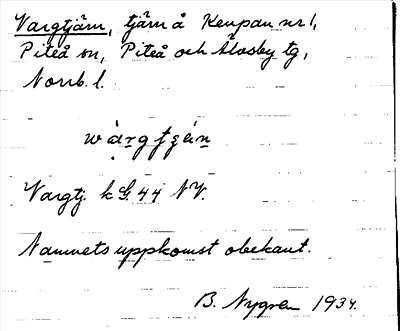 Vargtjärn, tjärn å Keupan nr 1,
Piteå sn, Piteå och Älvsby tg,
Norrb. l.
Vargtj. k G. 44 NV.
Namnets uppkomst obekant.
B. Nygren 1934.